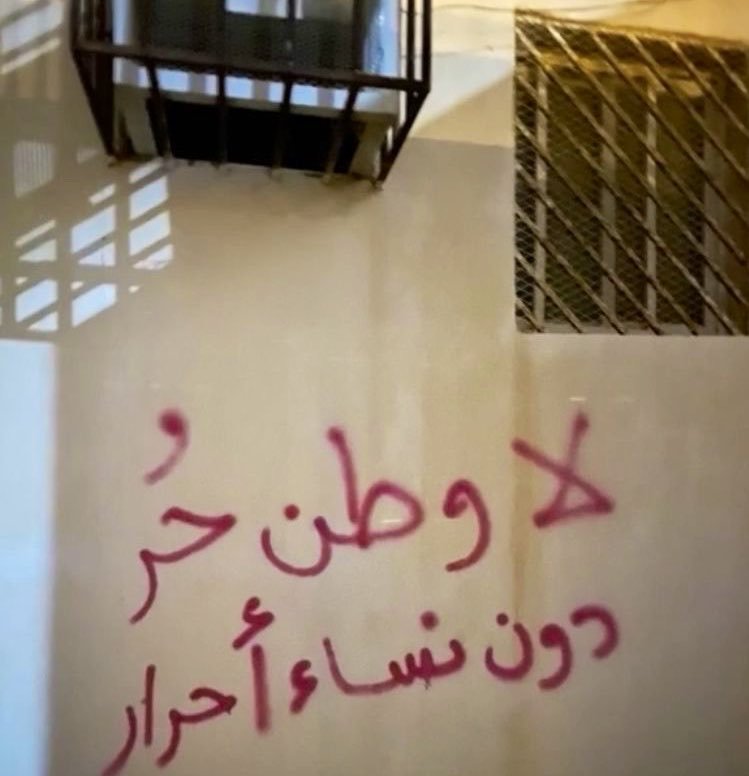 لا وطن حُر
دون نساء أحرار